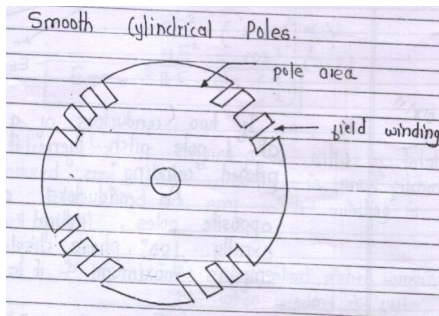 Smooth Cylindrical Poles.
pole area
field winding